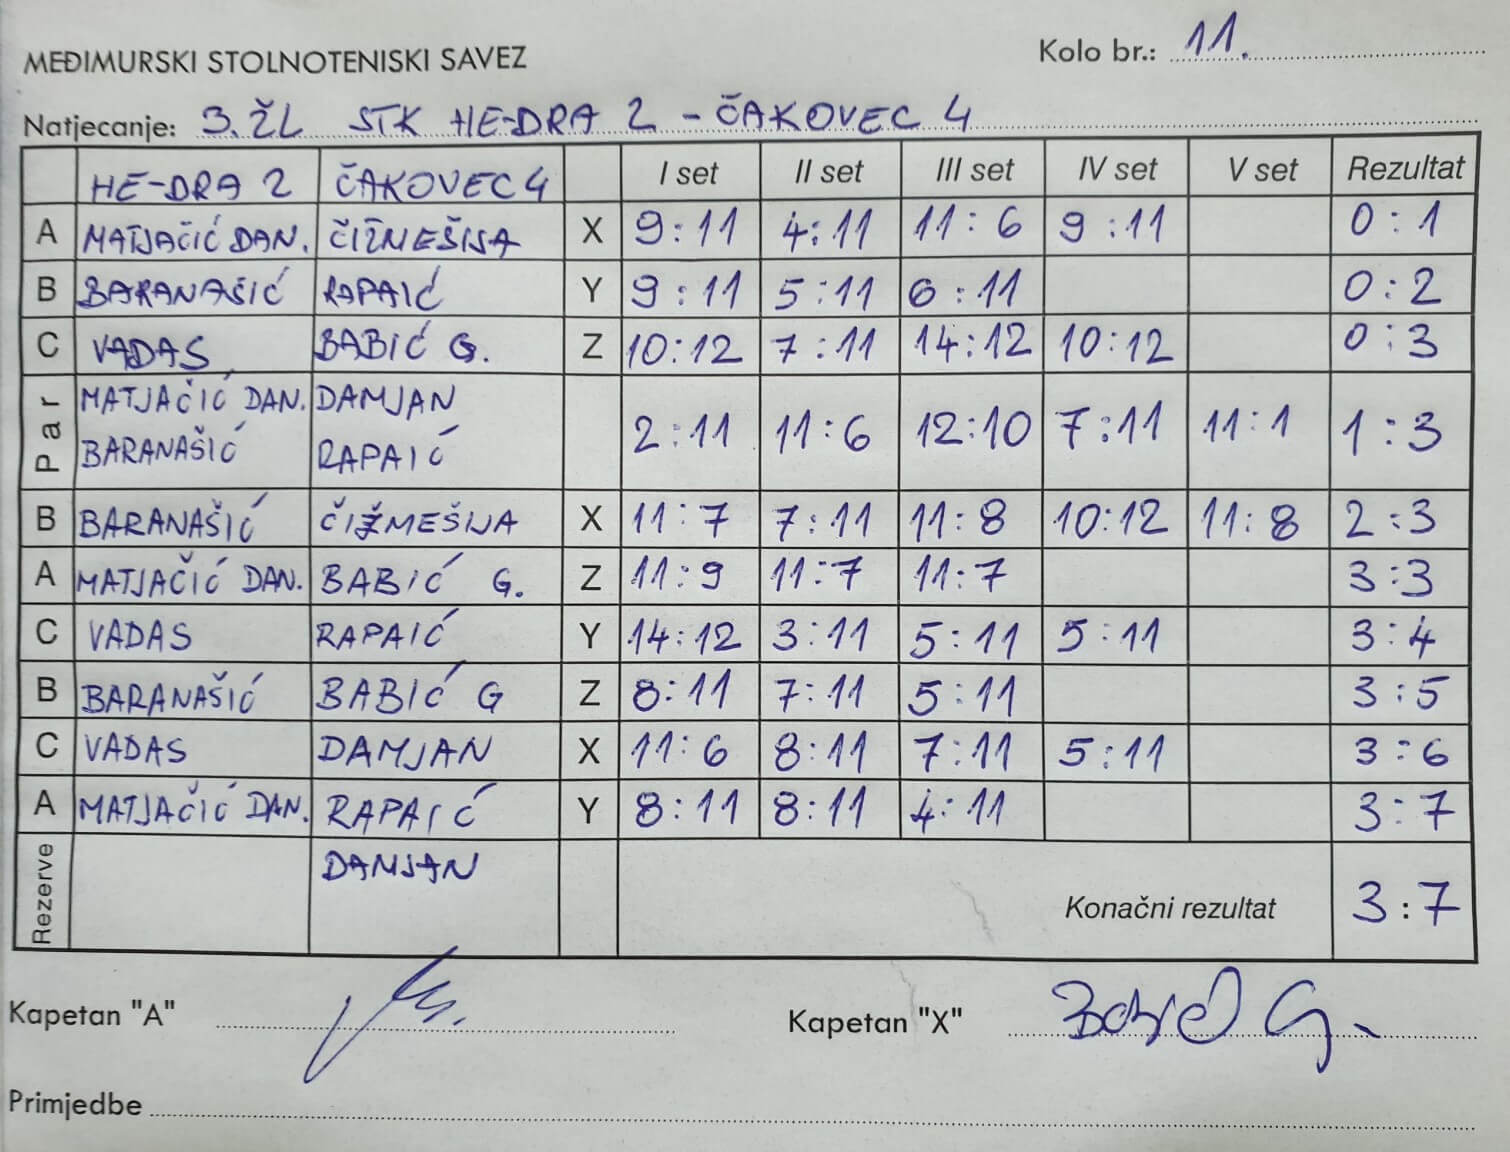 MEĐIMURSKI STOLNOTENISKI SAVEZ Kolo br.: 11.
Natjecanje: 3. ŽL STK HE-DRA 2 - ČAKOVEC 4
HE-DRA 2 ČAKOVEC 4 I set II set III set IV set V set Rezultat
A MATJAČIĆ DAN. ČIŽMEŠIJA X 9:11 4:11 11:6 9:11 0:1
B BARANAŠIĆ RAPAIĆ Y 9:11 5:11 6:11 0:2
C VADAS BABIĆ G. Z 10:12 7:11 14:12 10:12 0:3
Par MATJAČIĆ DAN. DAMJAN
BARANAŠIĆ RAPAIĆ 2:11 11:6 12:10 7:11 11:1 1:3
B BARANAŠIĆ ČIŽMEŠIJA X 11:7 7:11 11:8 10:12 11:8 2:3
A MATJAČIĆ DAN. BABIĆ G. Z 11:9 11:7 11:7 3:3
C VADAS RAPAIĆ Y 14:12 3:11 5:11 5:11 3:4
B BARANAŠIĆ BABIĆ G Z 8:11 7:11 5:11 3:5
C VADAS DAMJAN X 11:6 8:11 7:11 5:11 3:6
A MATJAČIĆ DAN. RAPAIĆ Y 8:11 8:11 4:11 3:7
Rezerve DAMJAN Konačni rezultat 3:7
Kapetan "A" Kapetan "X" Babić G.
Primjedbe